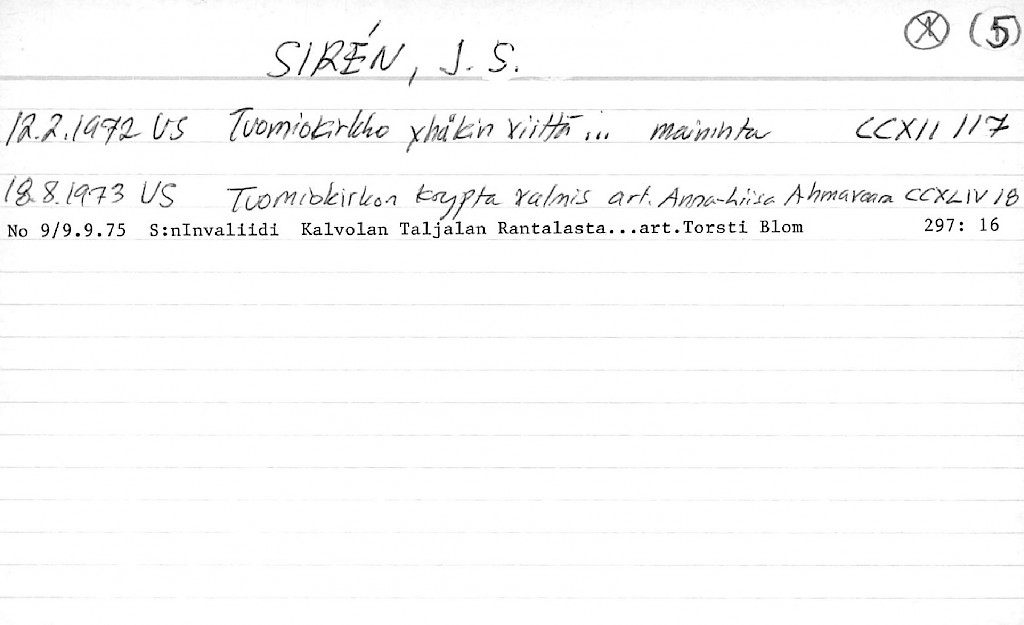 (5)
SIRÉN, J. S.
12.2.1972 US Tuomiokirkko yhäkin viittä... maininta CCXII 117
18.8.1973 US Tuomiokirkon krypta valmis art. Anna-Liisa Ahmavaara CCXLIV 18
No 9/9.9.75 S:nInvaliidi Kalvolan Taljalan Rantalasta...art.Torsti Blom 297: 16